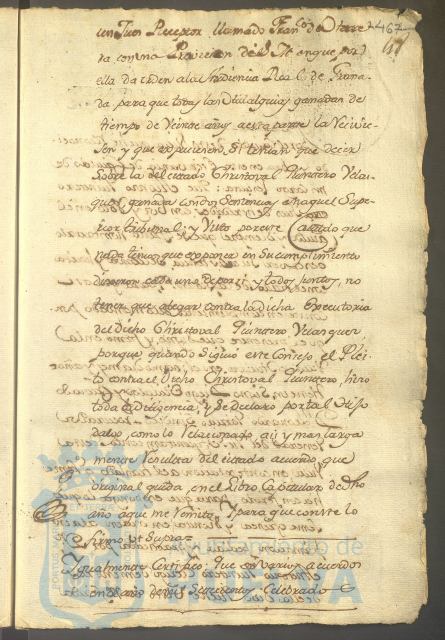 2467
un Juez Receptor llamado Fran.co de Herre
ra con una Provision de S. M. en que por
ella da orden a la Audiencia Real de Grana-
da para que todas las Hidalguias ganadas de
tiempo de Veinte años a esta parte la
sen y que expusiesen, si tenian que decir
sobre la del citado Christoval Quintero Velaz-
quez ganada con dos Sentencias en aquel Supe-
rior tribunal; y Visto por este Cavildo que
nada tenia que exponer en su cumplimiento
Dixeron cada uno de por si y todos juntos, no
tener que alegar contra la dicha Executoria
del Dicho Christoval Quintero Velazquez,
porque quando siguio este Consejo el Plei-
to contra el Dicho Christoval Quintero, hizo
toda diligencia, y se declaro por tal Hijo
dalgo, como lo relacionado asi y mas larga
mente resulta del citado acuerdo, que
original queda, en el Libro Capitular de dho
año a que me remito, y para que conste lo
firmo ut Supra=
Igualmente Certifico: que en varios acuerdos
el en el año de mil Setecientos Celebrado
Ayuntamiento de
HUELVA